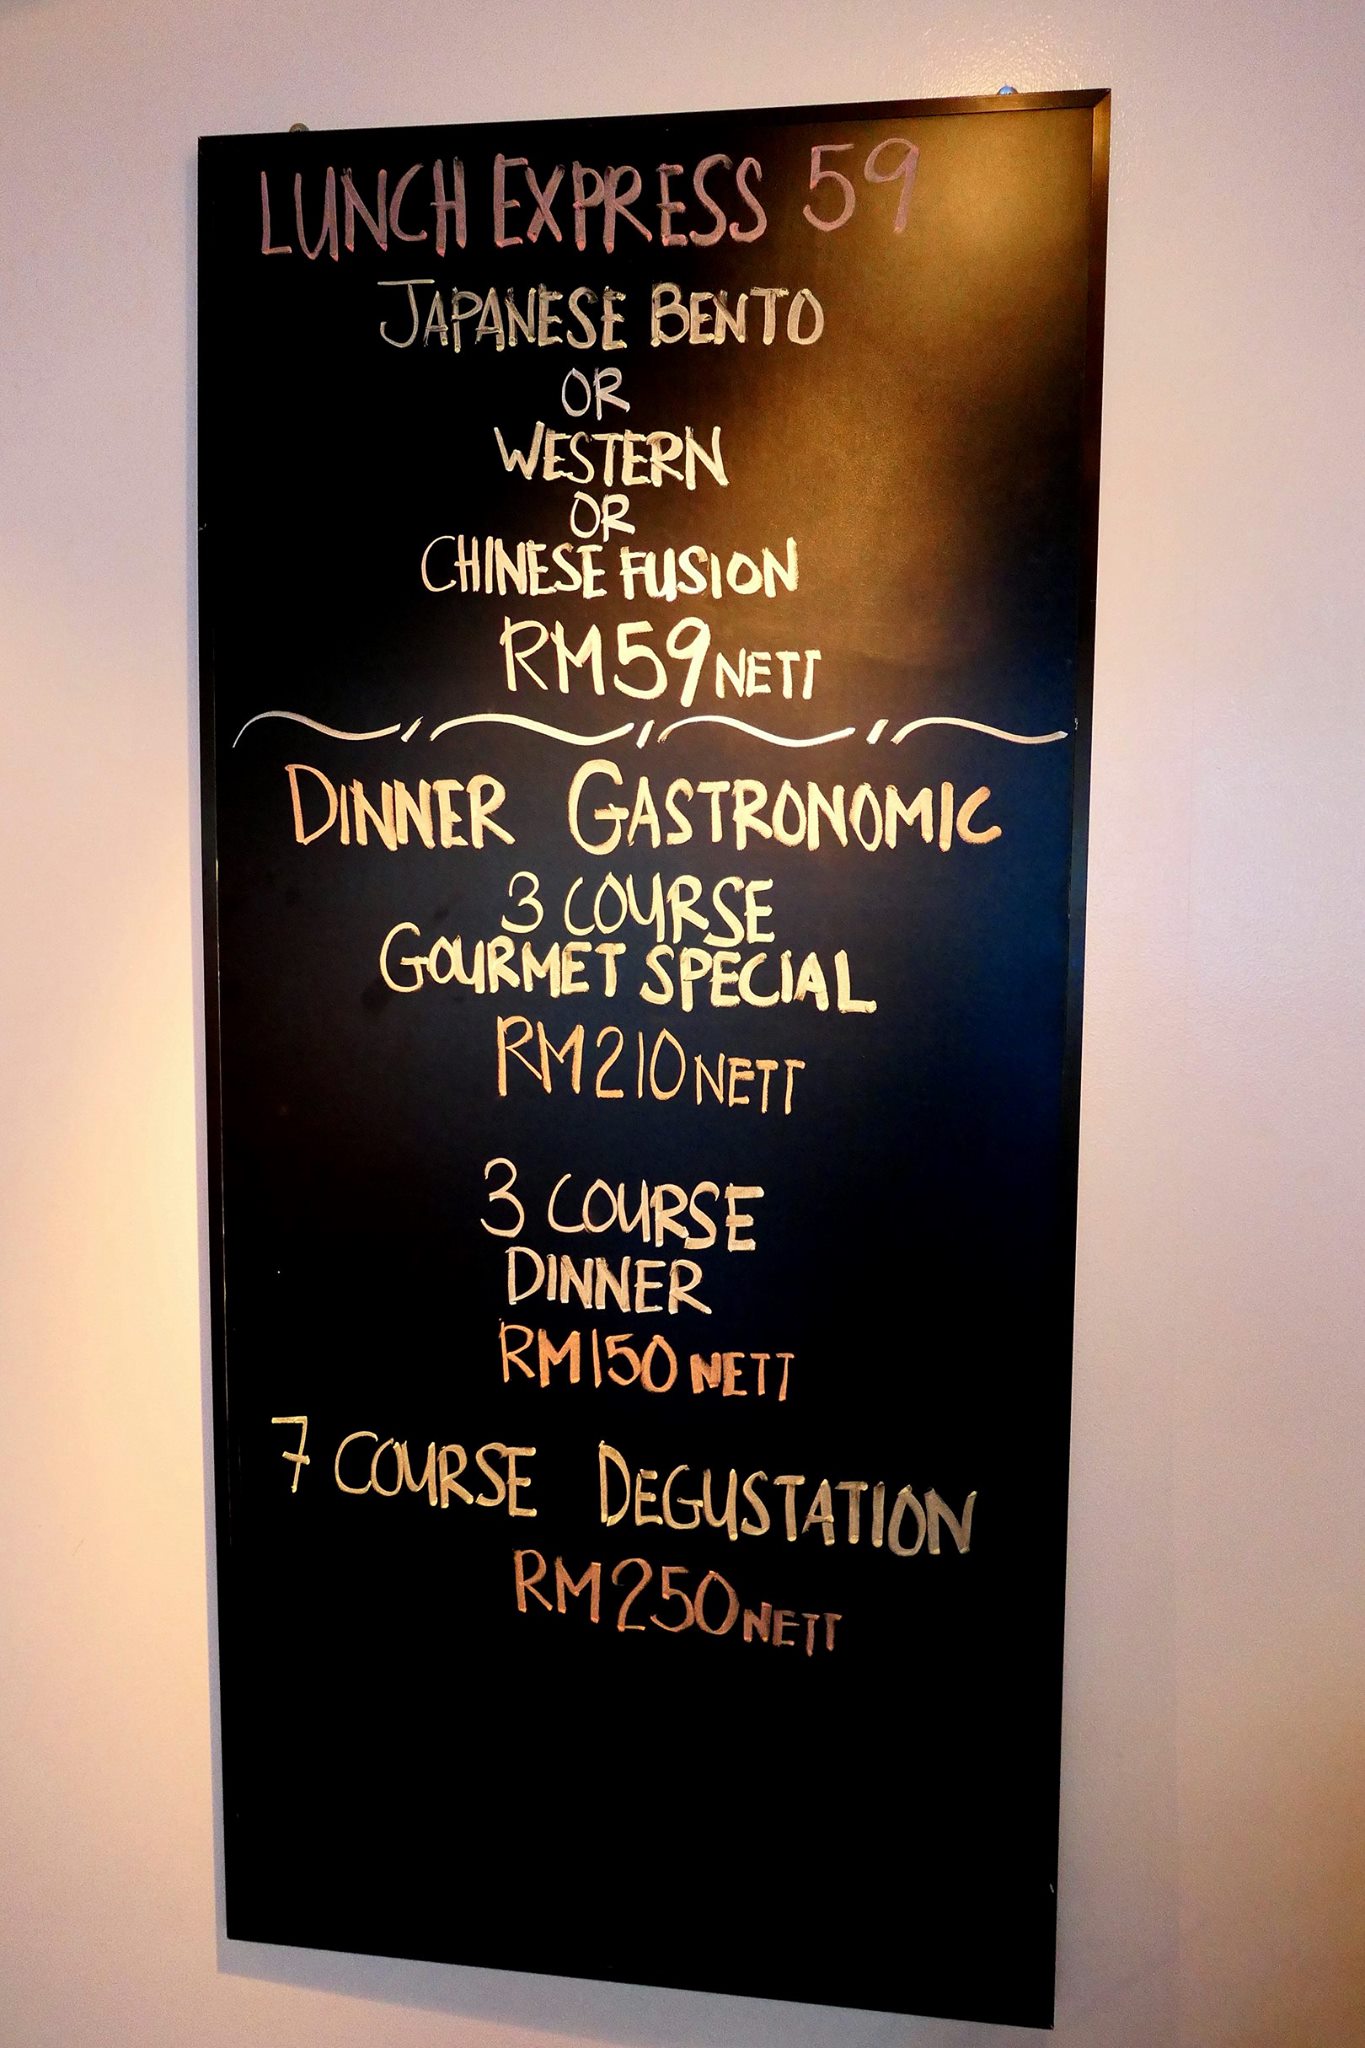 LUNCH EXPRESS 59
JAPANESE BENTO
OR
WESTERN
OR
CHINESE FUSION
RM59 NETT
DINNER GASTRONOMIC
3 COURSE
GOURMET SPECIAL
RM210 NETT
3 COURSE
DINNER
RM150 NETT
7 COURSE DEGUSTATION
RM250 NETT